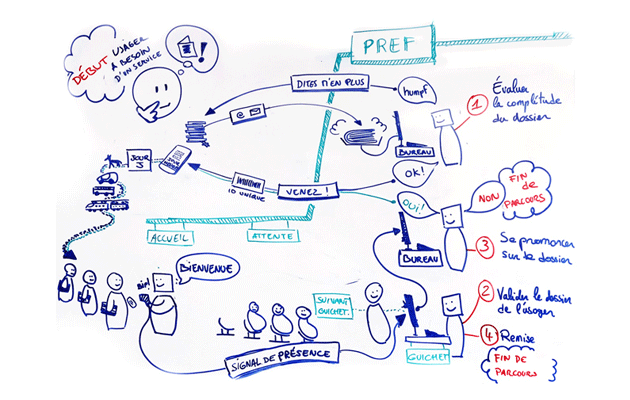 DÉBUT
USAGER
A BESOIN
D'UN SERVICE
!
PREF
DITES M'EN PLUS
humpf
@
BUREAU
1
Évaluer
la complétude
du dossier
OK!
JOUR
J
ID UNIQUE
VENEZ!
OUI!
NON
FIN
DE
PARCOURS
ACCUEIL
ATTENTE
BUREAU
3
Se prononcer
sur le dossier
BIP!
BIENVENUE
SUIVANT
GUICHET
2
Valider le dossier
de l'usager
4 Remise
GUICHET
FIN DE
PARCOURS
SIGNAL DE PRÉSENCE